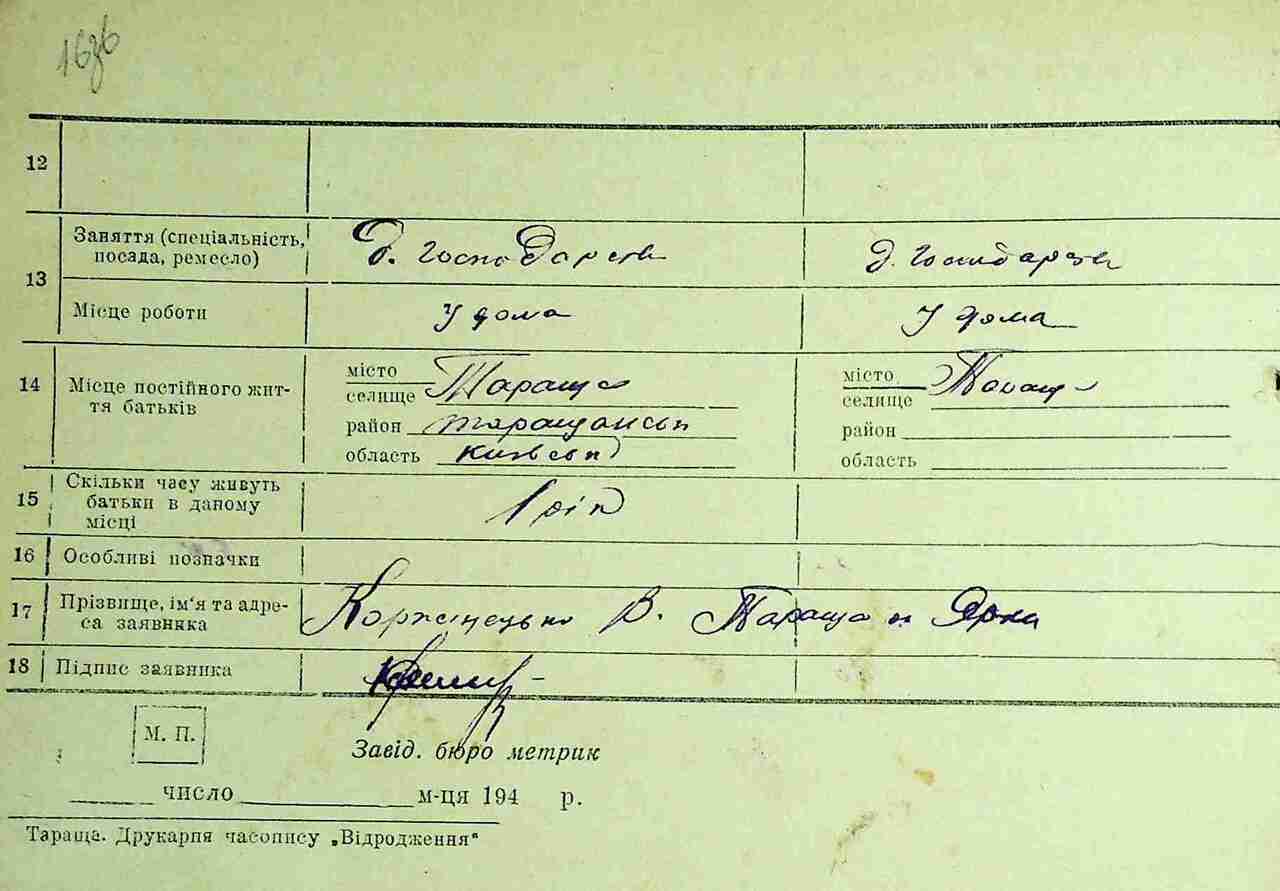 1636
12
13 Заняття (спеціальність, посада, ремесло) д. Господарств д. Господарств
Місце роботи у дома у дома
14 Місце постійного життя батьків
місто селище Тараща місто селище Тараща
район Таращанськ район
область Київськ область
15 Скільки часу живуть батьки в даному місці 1 рік
16 Особливі позначки
17 Прізвище, ім'я та адреса заявника В. Тараща
18 Підпис заявника
М. П.
Завід. бюро метрик
число м-ця 194 р.
Тараща. Друкарня часопису „Відродження"